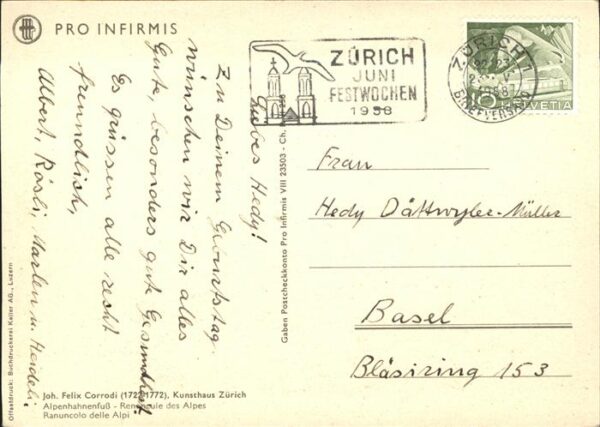 PRO INFIRMIS
Liebes Hedy!
Zu Deinem Geburtstag
wünschen wir Dir alles
Gute, besonders gute Gesundheit!
Es grüssen alle recht
freundlich,
Albert, Rösli, Marlen u. Heideli.
Joh. Felix Corrodi (1722-1772), Kunsthaus Zürich
Alpenhahnenfuß - Renoncule des Alpes
Ranuncolo delle Alpi
Offsetdruck: Buchdruckerei Keller AG., Luzern
Gaben Postcheckkonto Pro Infirmis VIII 23503 - Ch.
ZÜRICH
JUNI
FESTWOCHEN
1958
ZÜRICH 1
BRIEFVERSAND
HELVETIA
Frau
Hedy Dättwyler-Müller
Basel
Bläsiring 153